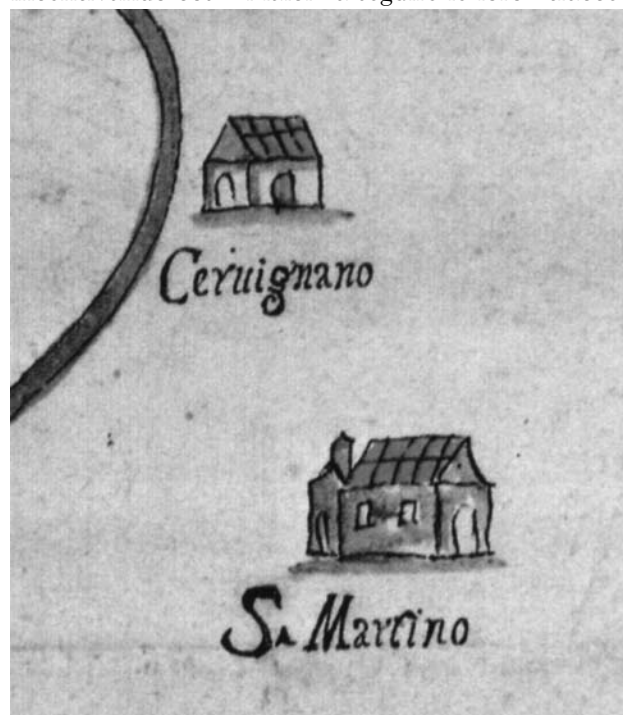 Ceruignano
Sa Martino